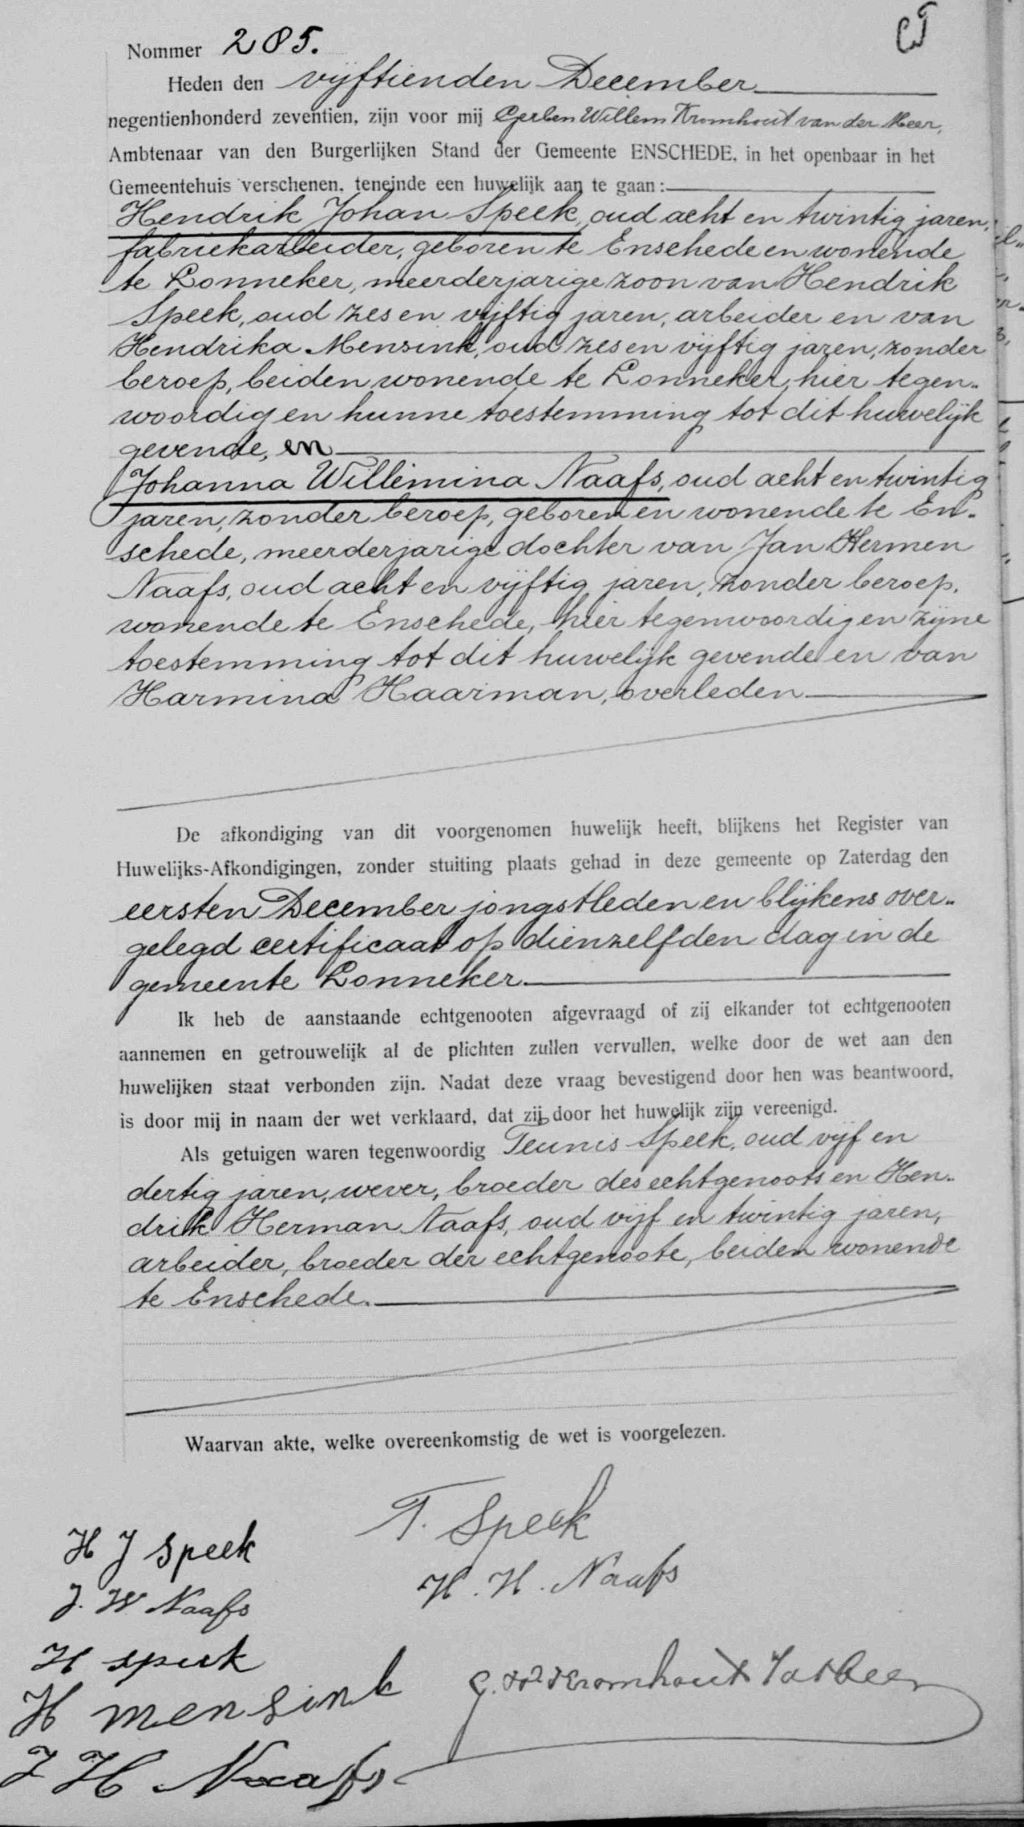 Nommer 285.
Heden den vijftienden December
negentienhonderd zeventien, zijn voor mij Gerben Willem Kromhout van der Meer,
Ambtenaar van den Burgerlijken Stand der Gemeente ENSCHEDE, in het openbaar in het
Gemeentehuis verschenen, teneinde een huwelijk aan te gaan:
Hendrik Johan Speek, oud acht en twintig jaren,
fabriekarbeider, geboren te Enschede en wonende
te Lonneker, meerderjarige zoon van Hendrik
Speek, oud zes en vijftig jaren, arbeider en van
Hendrika Mensink, oud zes en vijftig jaren, zonder
beroep, beiden wonende te Lonneker, hier tegen-
woordig en hunne toestemming tot dit huwelijk
gevende, en
Johanna Willemina Naafs, oud acht en twintig
jaren, zonder beroep, geboren en wonende te En-
schede, meerderjarige dochter van Jan Hermen
Naafs, oud acht en vijftig jaren, zonder beroep,
wonende te Enschede, hier tegenwoordig en zijne
toestemming tot dit huwelijk gevende en van
Harmina Haarman, overleden
De afkondiging van dit voorgenomen huwelijk heeft, blijkens het Register van
Huwelijks-Afkondigingen, zonder stuiting plaats gehad in deze gemeente op Zaterdag den
eersten December jongstleden en blijkens over-
gelegd certificaat op dienzelfden dag in de
gemeente Lonneker.
Ik heb de aanstaande echtgenooten afgevraagd of zij elkander tot echtgenooten
aannemen en getrouwelijk al de plichten zullen vervullen, welke door de wet aan den
huwelijken staat verbonden zijn. Nadat deze vraag bevestigend door hen was beantwoord,
is door mij in naam der wet verklaard, dat zij door het huwelijk zijn vereenigd.
Als getuigen waren tegenwoordig Teunis Speek, oud vijf en
dertig jaren, wever, broeder des echtgenoots en Hen-
drik Herman Naafs, oud vijf en twintig jaren,
arbeider, broeder der echtgenoote, beiden wonende
te Enschede.
Waarvan akte, welke overeenkomstig de wet is voorgelezen.
T. Speek
H J Speek
H. H. Naafs
J. W Naafs
H speek
G. W Kromhout vd Meer
H mensink
J H Naafs